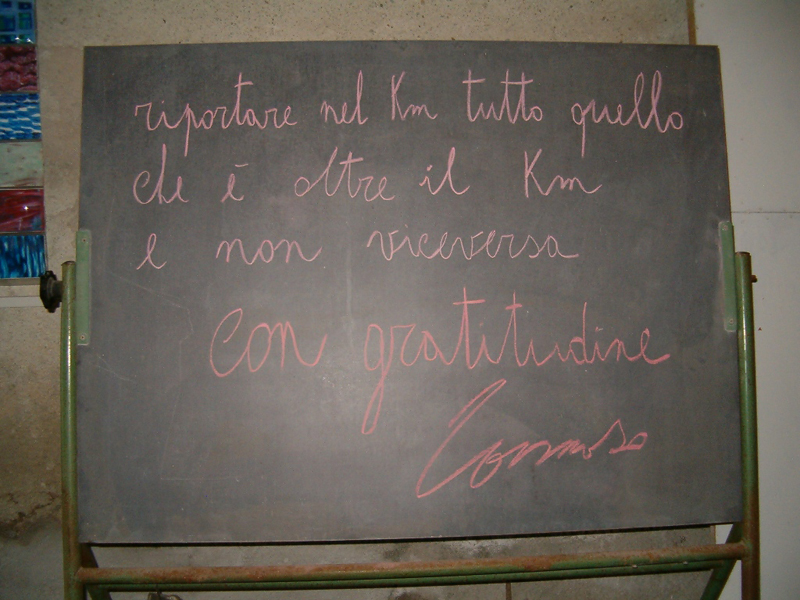 riportare nel Km tutto quello
che è oltre il Km
e non viceversa
con gratitudine